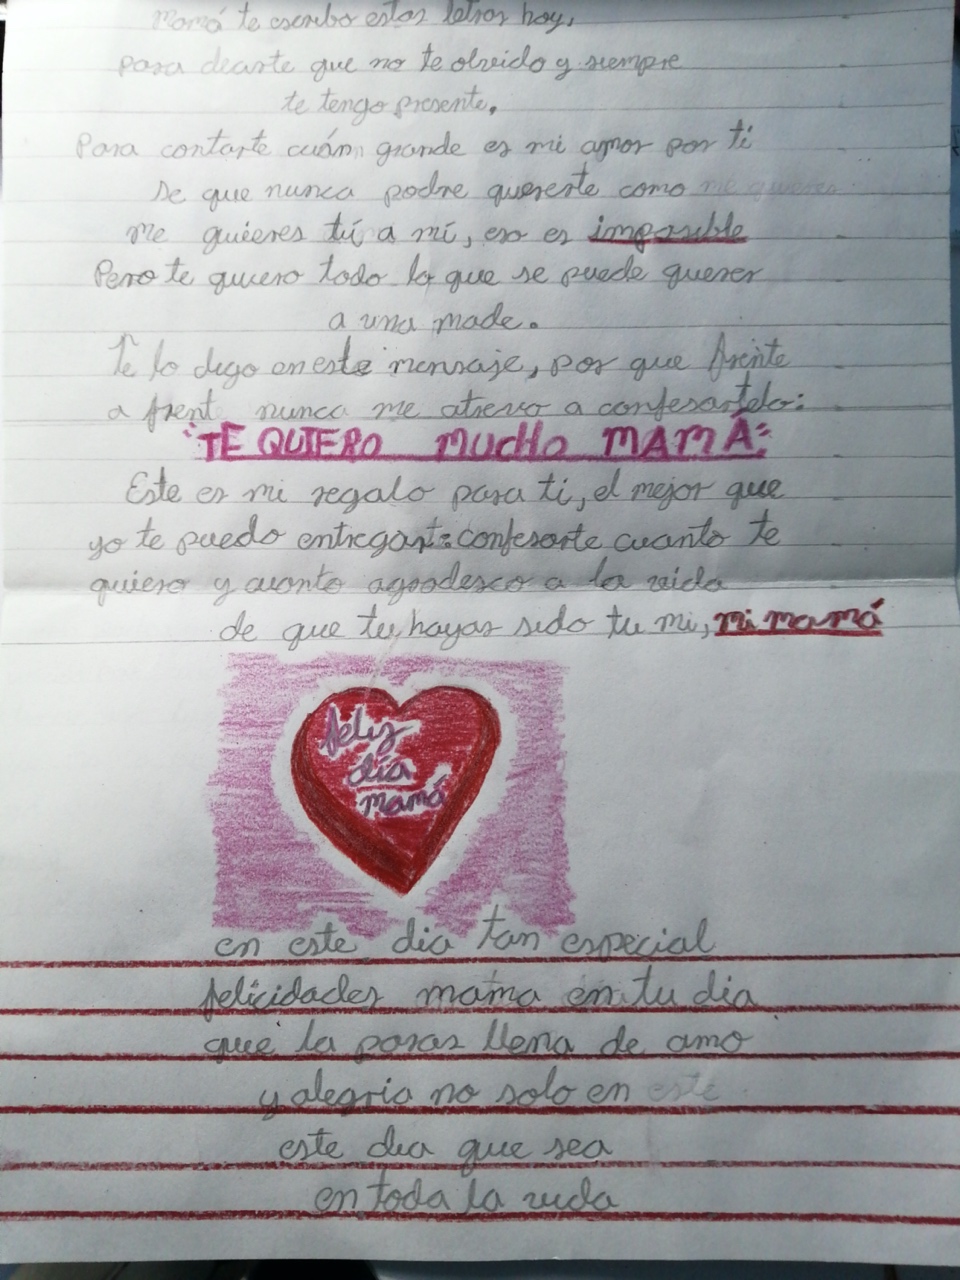 Mamá te escribo estas letras hoy,
para decirte que no te olvido y siempre
te tengo presente.
Para contarte cuán grande es mi amor por ti
se que nunca podre quererte como me quieres
me quieres tú a mí, eso es imposible
Pero te quiero todo lo que se puede querer
a una made.
Te lo digo en este mensaje, por que frente
a frent nunca me atrevo a confesartelo:
"TE QUIERO MUCHO MAMÁ"
Este es mi regalo para ti, el mejor que
yo te puedo entregart: confesarte cuanto te
quiero y cuanto agradesco a la vida
de que tu hayas sido tu mi, mi mamá
feliz
día
mamá
en este dia tan especial
felicidades mama en tu dia
que la pasas llena de amo
y alegria no solo en este
este dia que sea
en toda la vida